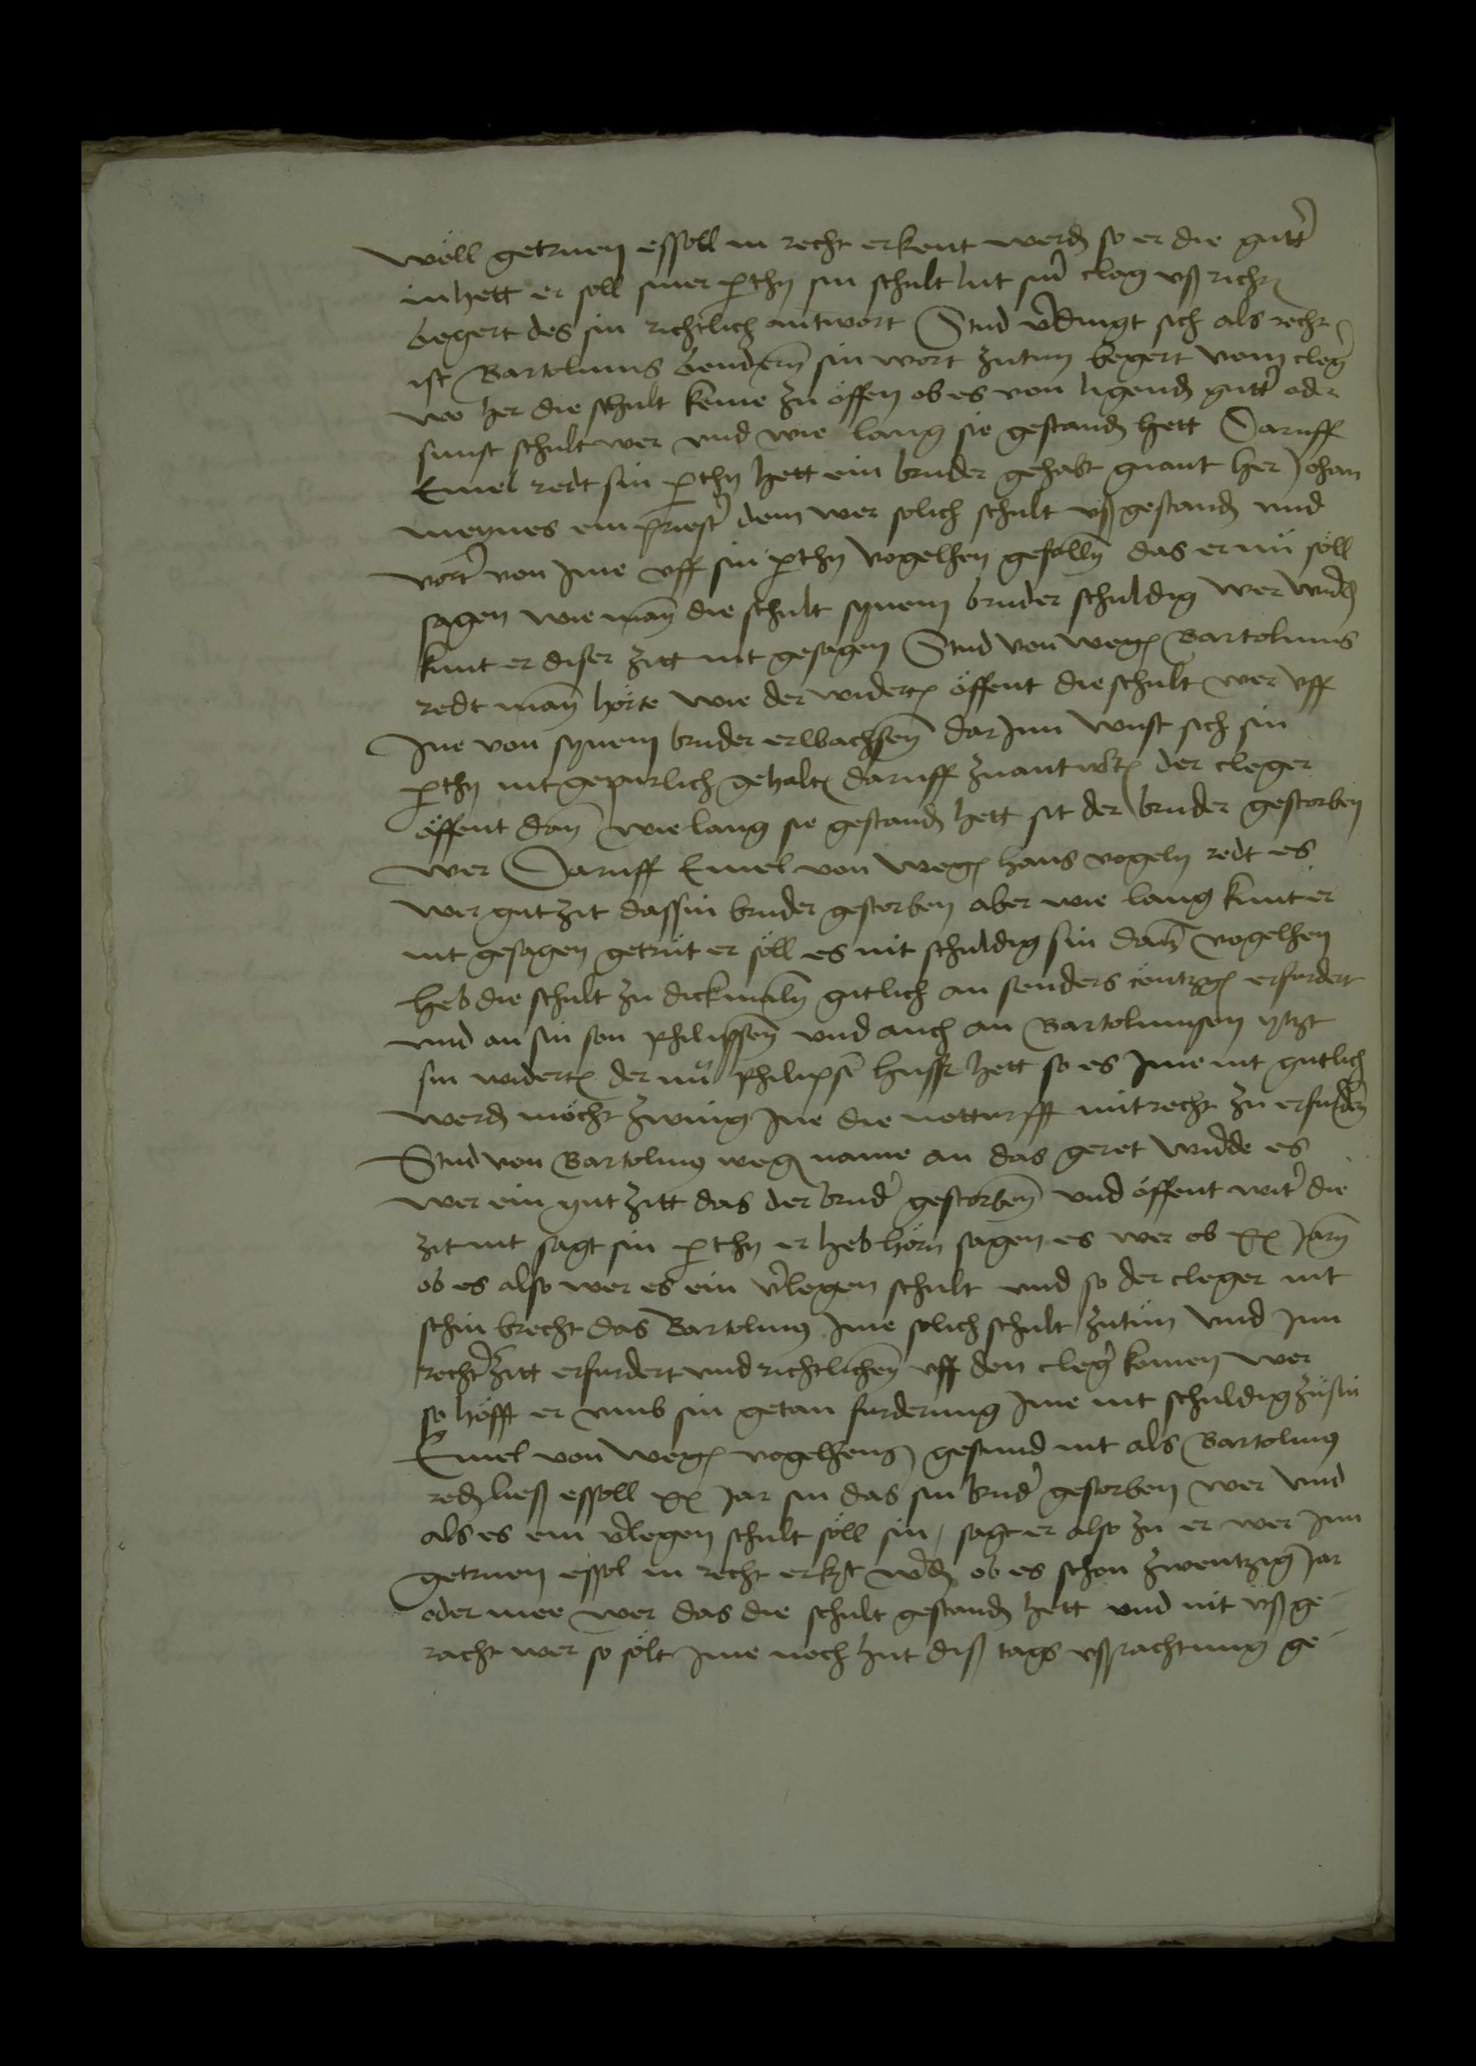 wöll getruen essoll in recht erkent werd so er die gutt
in hett er soll siner pthy sin schult lut sin clag ußricht
begert des sin richtlich antwort Stud vdingt sich als recht
ist Bartolmus bendern sin wort zutun begert vom cleg
wo her die schult keme zu öffen ob es von ligend gutt oder
sunst schult wer und wie lang sie gestand hett Daruff
Emel redt sin pthy hett ein bruder gehabt gnant her Johan
meynes ein priest dem wer solich schult ußgestand und
vort von Ime uff sin pthy vogelhen gefalln das er nü söll
sagen wie man die schult synem bruder schuldig wer wurd
kunt er diser zitt nit gesagen Stud von weg Bartolmus
redt man hörte wie der widert öffent die schult wer uff
Ine von synem bruder erwachsen dar Inn wust sich sin
pthy nit gepurlich gehalt daruff zuantwort der cleger
öffent dan wie lang sie gestand hett sit der bruder gestorben
wer Daruff Emel von weg hans vogeln redt es
wer gut zit das sin bruder gestorben aber wie lang kunt er
nit gesagen getrut er söll es nit schuldig sin dann vogelhen
heb die schult zu dickmaln gutlich an senders erfordert
und an sin son philipsen und auch an Bartolmusen ytzt
sin widert der nü philips husfr hett so es Ime nit gutlich
werd möcht zwing Ine die notturfft mit recht zu erfurdern
Stud von Bartolmus weg name an das geret wurde es
wer ein gut zitt das der brud gestorben und öffent wit die
zit nit sagt sin pthy er heb hörn sagen es wer ob xx Jarn
ob es also wer es ein vlegen schult und so der cleger nit
schin brecht das Bartolmus Ime solich schult zutün und Inn
recht zitt erfurdert und richtlichen uff den cleg komen wer
so höfft er umb sin getan furderung Ime nit schuldig zusin
Emel von weg vogelhens gestund nit als Bartolmus
red ließ essoll xx Jar sin das sin brud gestorben wer und
als es ein vlegen schult söll sin, sagt er also zu er wer Inn
getruen essol in recht erkt wd ob es schon zwentzig Jar
oder mee wer das die schult gestand hett und nit ußge-
racht wer so sölt Ime noch hut diß tags ußrachtung ge-